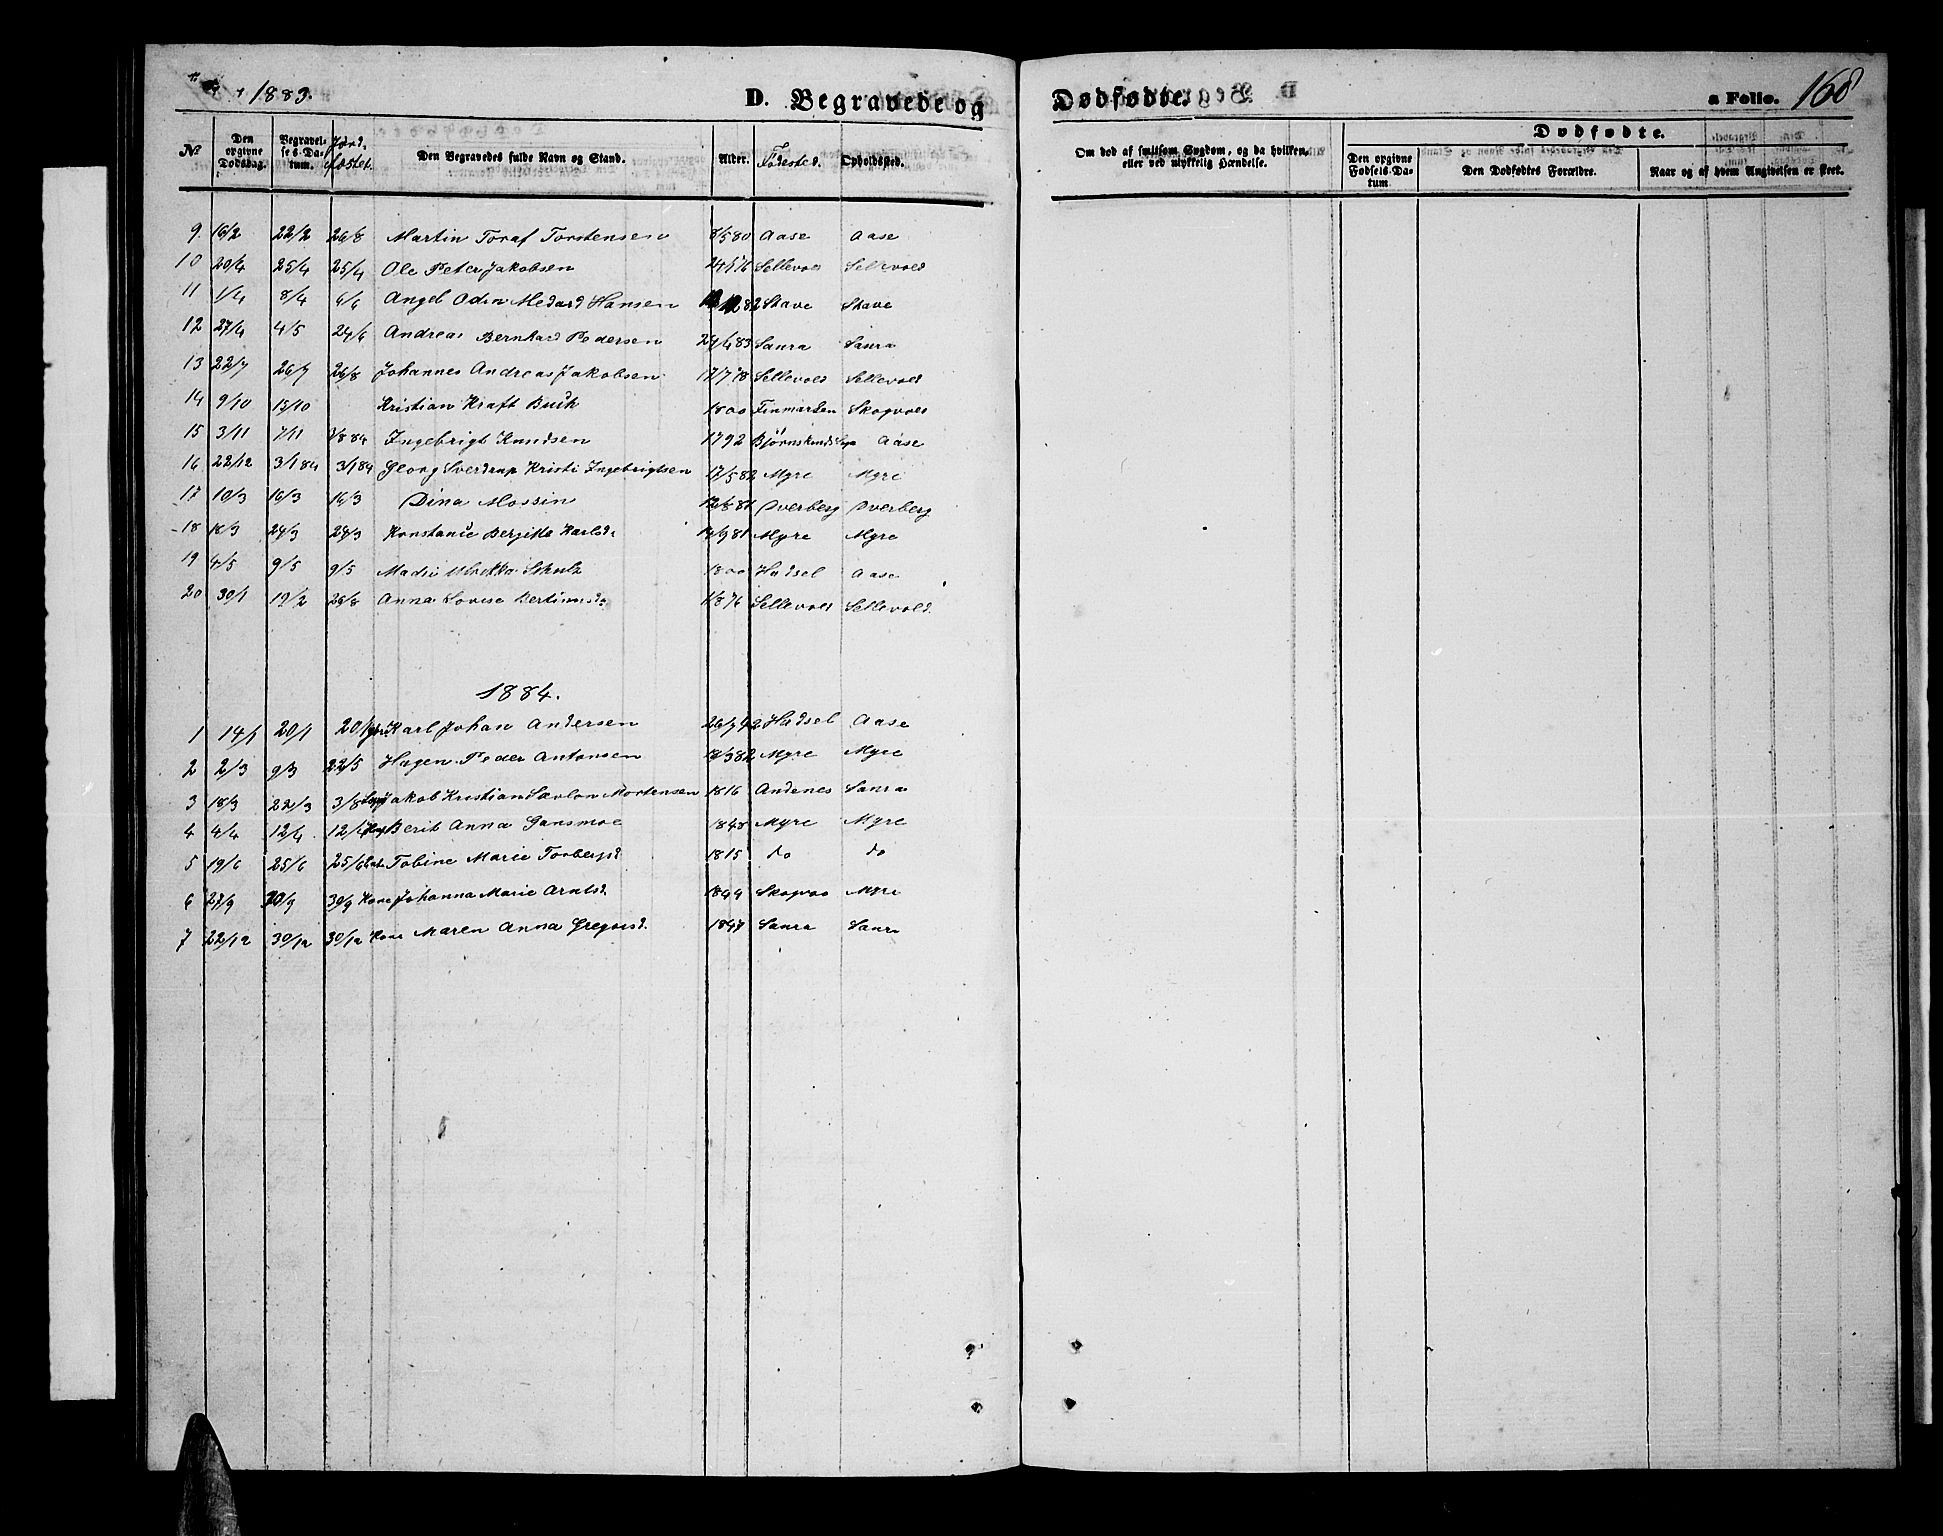 1883.
D. Begravede og Dødfødte. a Folio. 168
№ Den opgivne Dødsdag. Begravelses-Datum. Jordfæstet. Den Begravedes fulde Navn og Stand. Alder. Fødested. Opholdssted. Om død af smitsom Sygdom, og da hvilken, eller ved ulykkelig Hændelse. Dødfødte. Den opgivne Fødsels-Datum. Den Dødfødtes Forældre. Naar og af hvem Angivelsen er skeet.
9. 16/2 22/2 26/8 Martin Toraf Torstensen 8/5 80 Aase Aase
10 20/4 25/4 25/4 Ole Peter Jakobsen Sellevold Sellevold
11 1/4 8/4 6/6 Angel Odin Medard Hansen 82 Stave Stave
12 27/4 4/5 24/6 Andreas Bernhard Pedersen 24/4 83 Saura Saura
13 22/7 26/7 26/8 Johannes Andreas Jakobsen 17/7 78 Sellevold Sellevold
14 9/10 15/10 Kristian Kraft Buch 1800 Finmarken Skogvold
15 3/11 7/11 3/8 84 Ingebrigt Knudsen 1792 Bjørnskinds Sogn Aase
16 22/12 3/1 84 3/1 84 Georg Sverdrup Kristi Ingebrigtsen 17/5 82 Myre Myre
17 10/3 16/3 16/3 Dina Mossin 12/8 81 Overberg Overberg
18 18/3 24/3 24/3 Konstance Berjitte Karlsd. 81 Myre Myre
19 4/5 9/5 9/5 Schulz 1800 Hadsel Aase
20 30/1 19/2 26/8 Anna Lovise 1/8 76 Sellevold Sellevold
1884.
1 14/1 20/1 20/1 Karl Johan Andersen 26/7 42 Hadsel Aase
2 2/3 9/3 22/5 Hagen Peder Antonsen 18/3 82 Myre Myre
3 18/3 22/3 3/8 Jakob Kristian Mortensen 1816 Andenes Saura
4 4/4 12/4 12/4 Berit Anna Gansmoe 1848 Myre Myre
5 19/6 25/6 25/6 Tobine Marie Torbergsd 1815 do do
6 27/9 30/9 30/9 Kone Johanna Marie Arntsd. 1844 Skogvold Myre
7 22/12 30/12 30/12 Kone Maren Anna Gregersd. 1847 Saura Saura